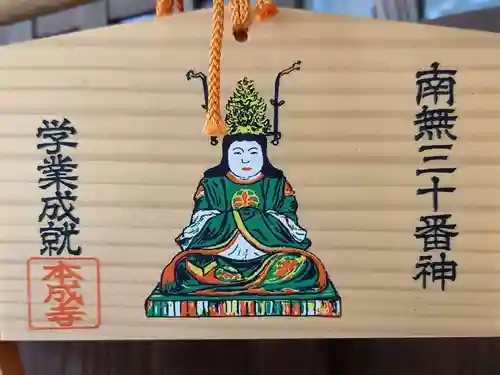 南無三十番神
学業成就
本成寺